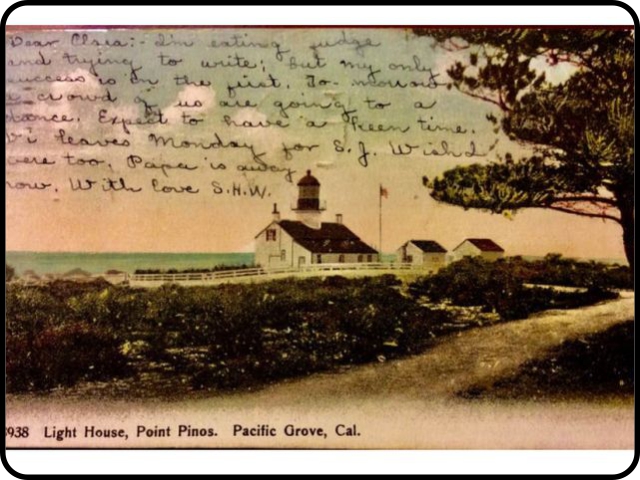 Dear Elsa:- I'm eating fudge
and trying to write; but my only
success is in the first. To-morrow
a crowd of us are going to a
dance. Expect to have a keen time.
Vi leaves Monday for S.J. Wish I
were too. Papa is away
now. With love S.H.W.
3938 Light House, Point Pinos. Pacific Grove, Cal.